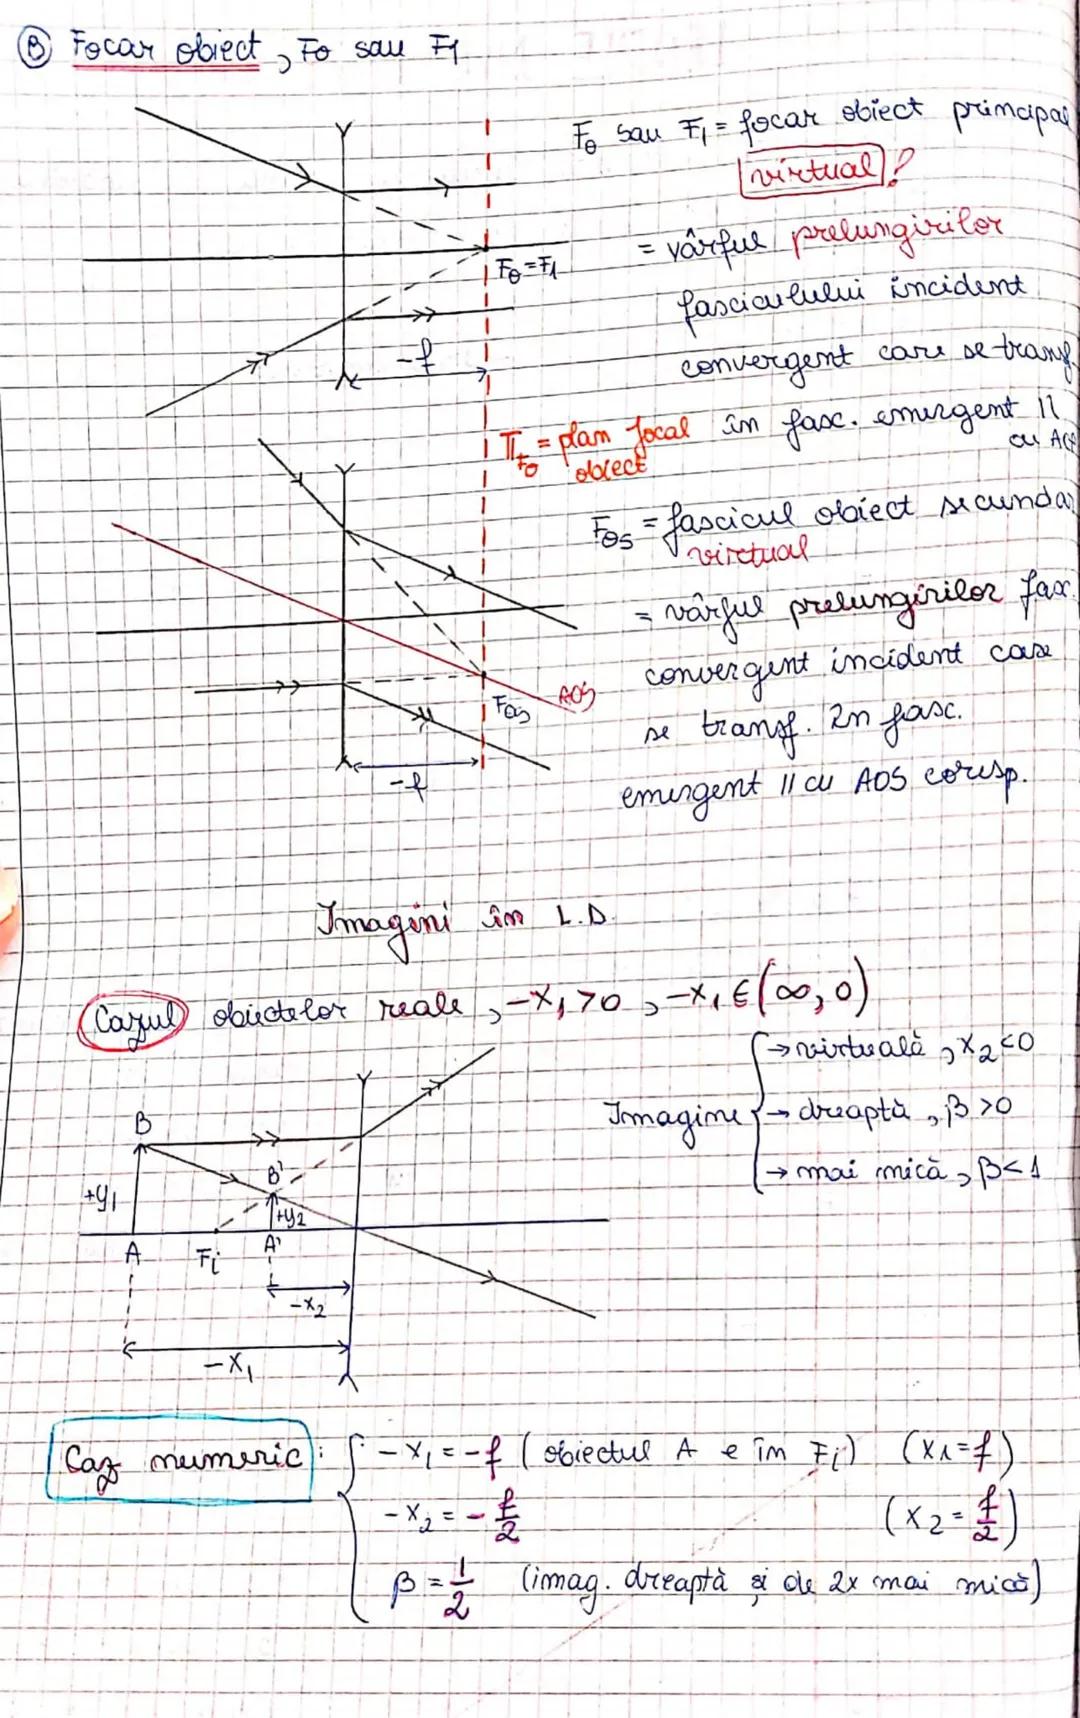 B Focar obiect, Fo sau F1
Fo sau F1 = focar obiect principal
virtual!
= vârful prelungirilor
fasciculului incident
convergent care se transf.
în fasc. emergent ||
cu AO
Fo=F1
-f
πFo = plan focal
obiect
Fos = fascicul obiect secundar
virtual
= vârful prelungirilor fasc.
convergent incident care
se transf. în fasc.
emergent || cu AOS coresp.
AOS
Fos
-f
Imagini în L.D.
Cazul obiectelor reale, -x1>0, -x1 ∈ (∞, 0)
Imagine
→ virtuală, x2<0
→ dreaptă, β>0
→ mai mică, β<1
B
+y1
B'
+y2
A
Fi
A'
-x2
-x1
Caz numeric: -x1 = -f (obiectul A e în Fi) (x1=f)
-x2 = - f/2 (x2 = f/2)
β = 1/2 (imag. dreaptă și de 2x mai mică)